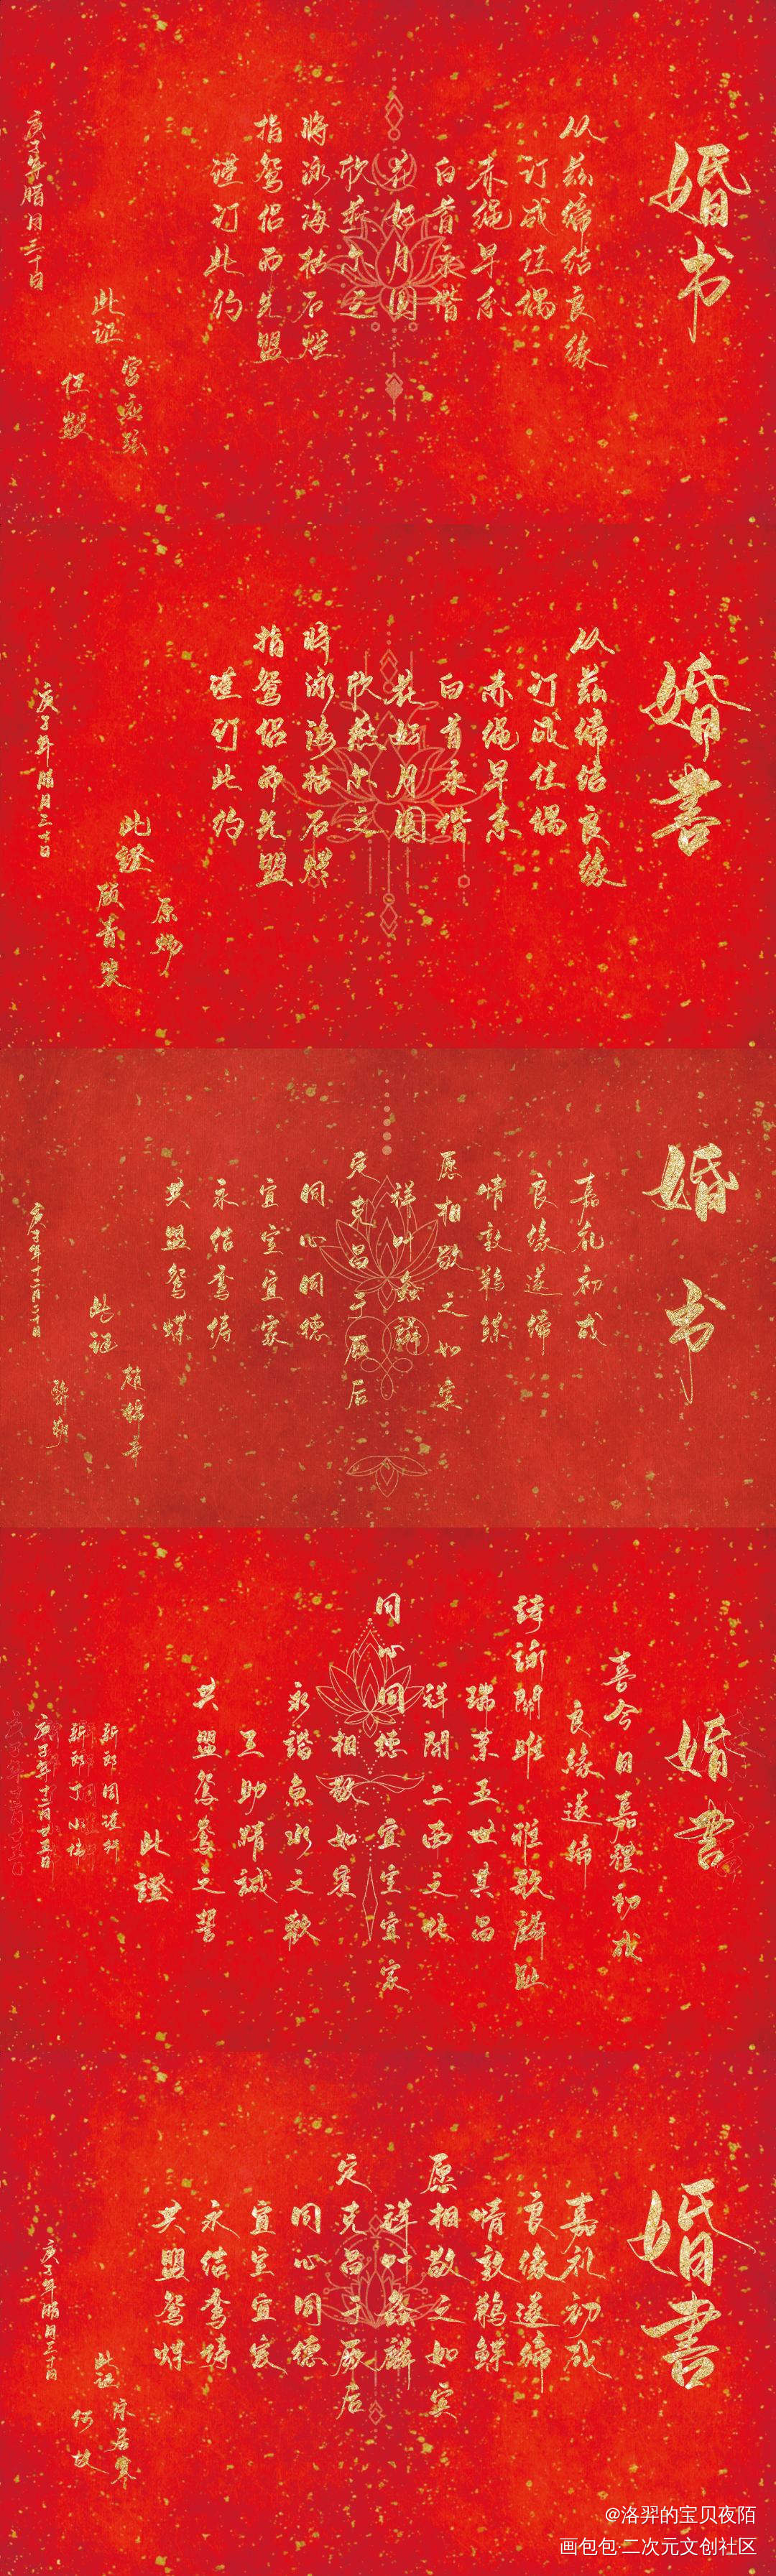 婚书
从兹缔结良缘
订成佳偶
赤绳早系
白首永偕
花好月圆
欣燕尔之
将泳海枯石烂
指鸳侣而先盟
谨订此约
此证
宫应弦
庚子年腊月三十日
婚書
从兹缔结良缘
订成佳偶
赤绳早系
白首永偕
花好月圆
欣燕尔之
将泳海枯石烂
指鸳侣而先盟
谨订此约
此證
原炀
顾青裴
庚子年腊月三十日
婚书
嘉礼初成
良缘遂缔
情敦鹣鲽
愿相敬之如宾
祥叶螽麟
定克昌于厥后
同心同德
宜室宜家
永结鸾俦
共盟鸳蝶
此证
赵锦辛
黎朔
婚書
喜今日嘉禮初成
良緣遂締
詩詠關雎 雅歌麟趾
瑞葉五世其昌
祥開二南之化
同心同德 宜室宜家
相敬如賓
永諧魚水之歡
互助精誠
共盟鴛鴦之誓
此證
新郎周謹行
新郎丁小偉
庚子年十二月廿五日
婚書
嘉礼初成
良缘遂缔
情敦鹣鲽
愿相敬之如宾
祥叶螽麟
定克昌于厥后
同心同德
宜室宜家
永结鸾俦
共盟鸳蝶
此证
宋居寒
何故
庚子年腊月三十日
@洛羿的宝贝夜陌
画包包·二次元文创社区